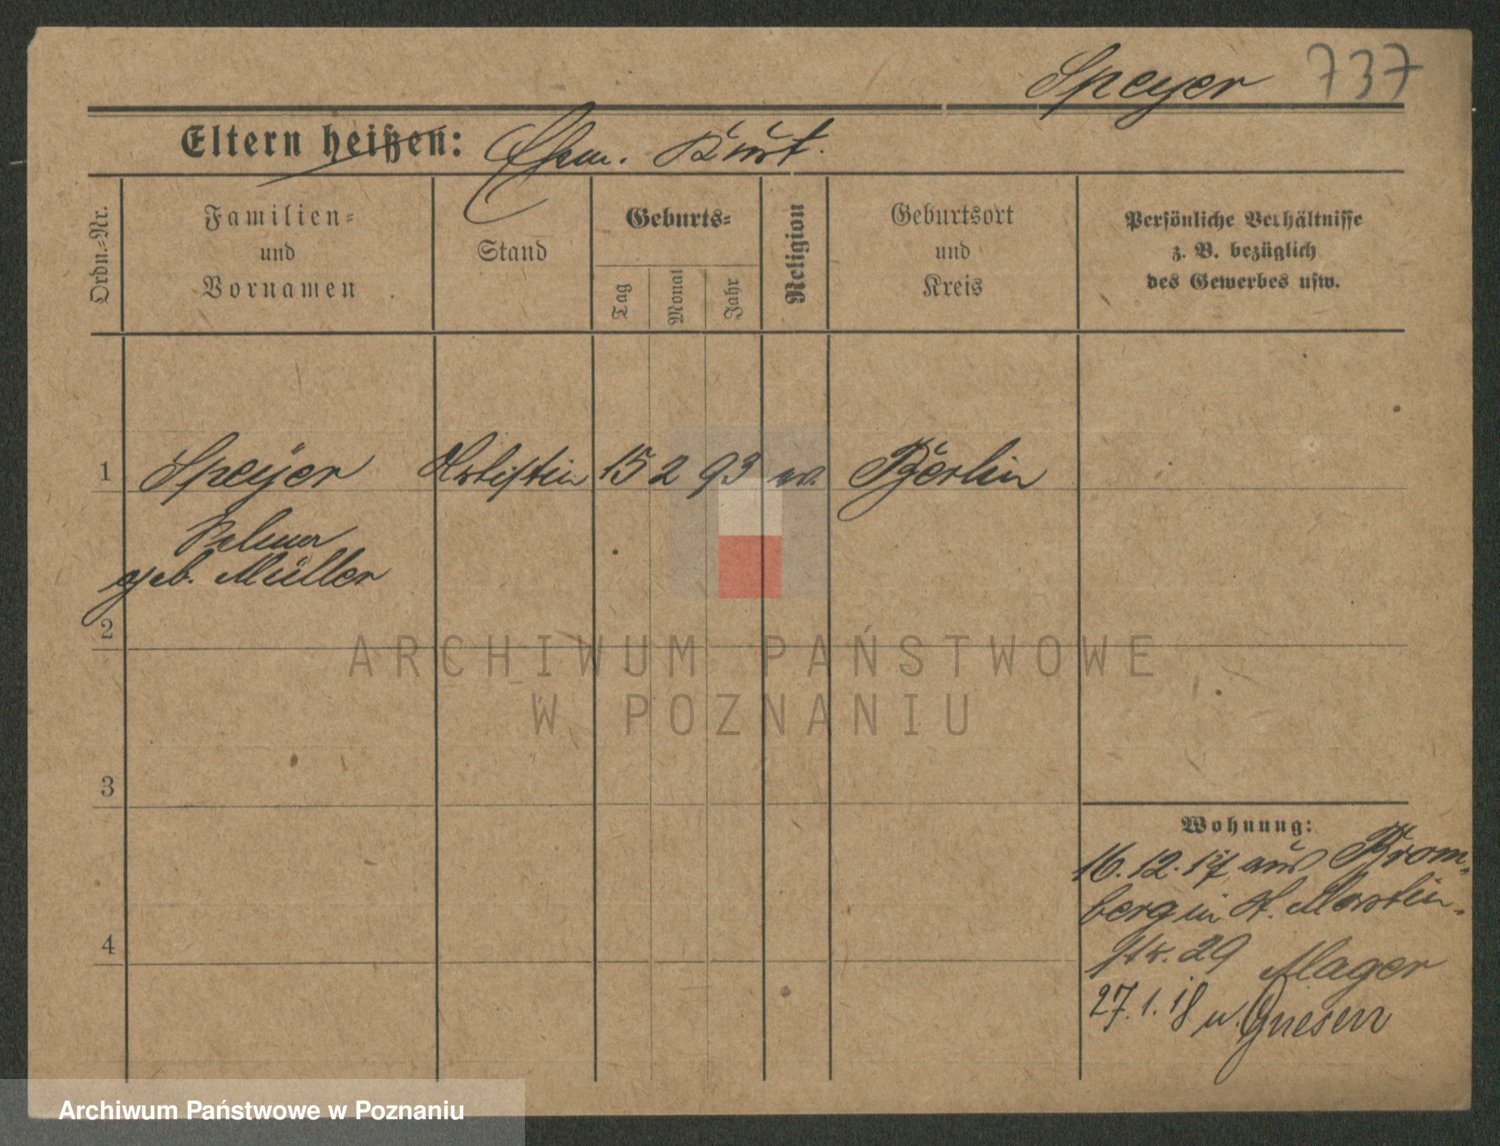 Speyer 737
Eltern heißen: Ehem. Kurt.
Ordn.-Nr.
Familien-
und
Vornamen
Stand
Geburts-
Tag
Monat
Jahr
Religion
Geburtsort
und
Kreis
Persönliche Verhältnisse
z. B. bezüglich
des Gewerbes usw.
1 Speyer Artistin 15 2 93 ev. Berlin
geb. Müller
2
3
4
Wohnung:
16.12.17 aus Brom-
berg in St. Martin-
str. 29 Mager
27.1.18 n. Gnesen
ARCHIWUM PAŃSTWOWE
W POZNANIU
Archiwum Państwowe w Poznaniu